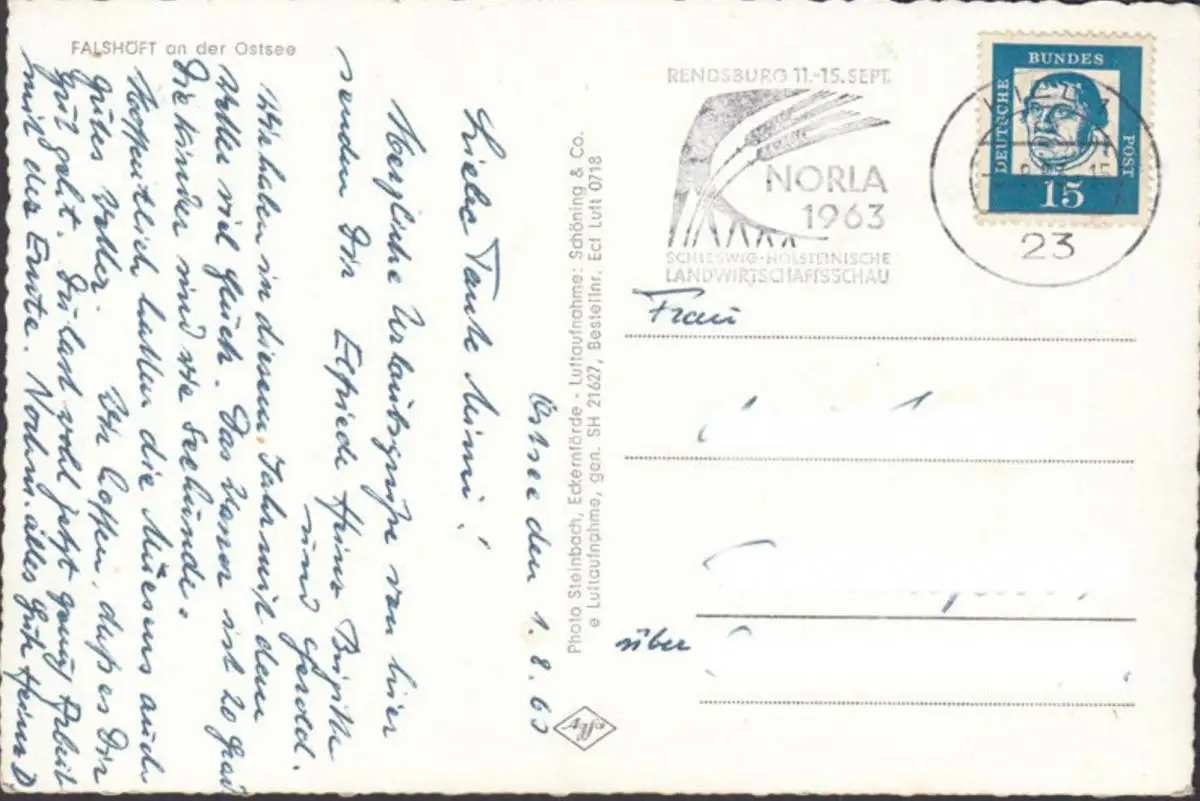 FALSHÖFT an der Ostsee
Ostsee den 1.8.63
Liebe Tante Mimi!
Herzliche Urlaubsgrüße von hier
senden Dir Elfriede Heinz Brigitte
und Gerold.
Wir haben in diesem Jahr mit dem
Wetter viel Glück. Das Wasser ist 20 Grad
Die Kinder sind wie Seehunde.
Hoffentlich hatten die auch
gutes Wetter. Wir hoffen, daß es Dir
gut geht. Du hast wohl jetzt genug Arbeit
mit der Ernte. Nochm. alles Gute Heinz
Photo Steinbach, Eckernförde - Luftaufnahme: Schöning & Co.
e Luftaufnahme, gen. SH 21627, Bestellnr. Ecf Luft 0718
Agfa
RENDSBURG 11.-15. SEPT.
NORLA
1963
SCHLESWIG-HOLSTEINISCHE
LANDWIRTSCHAFTSSCHAU
DEUTSCHE
BUNDES
POST
15
23
Frau
über